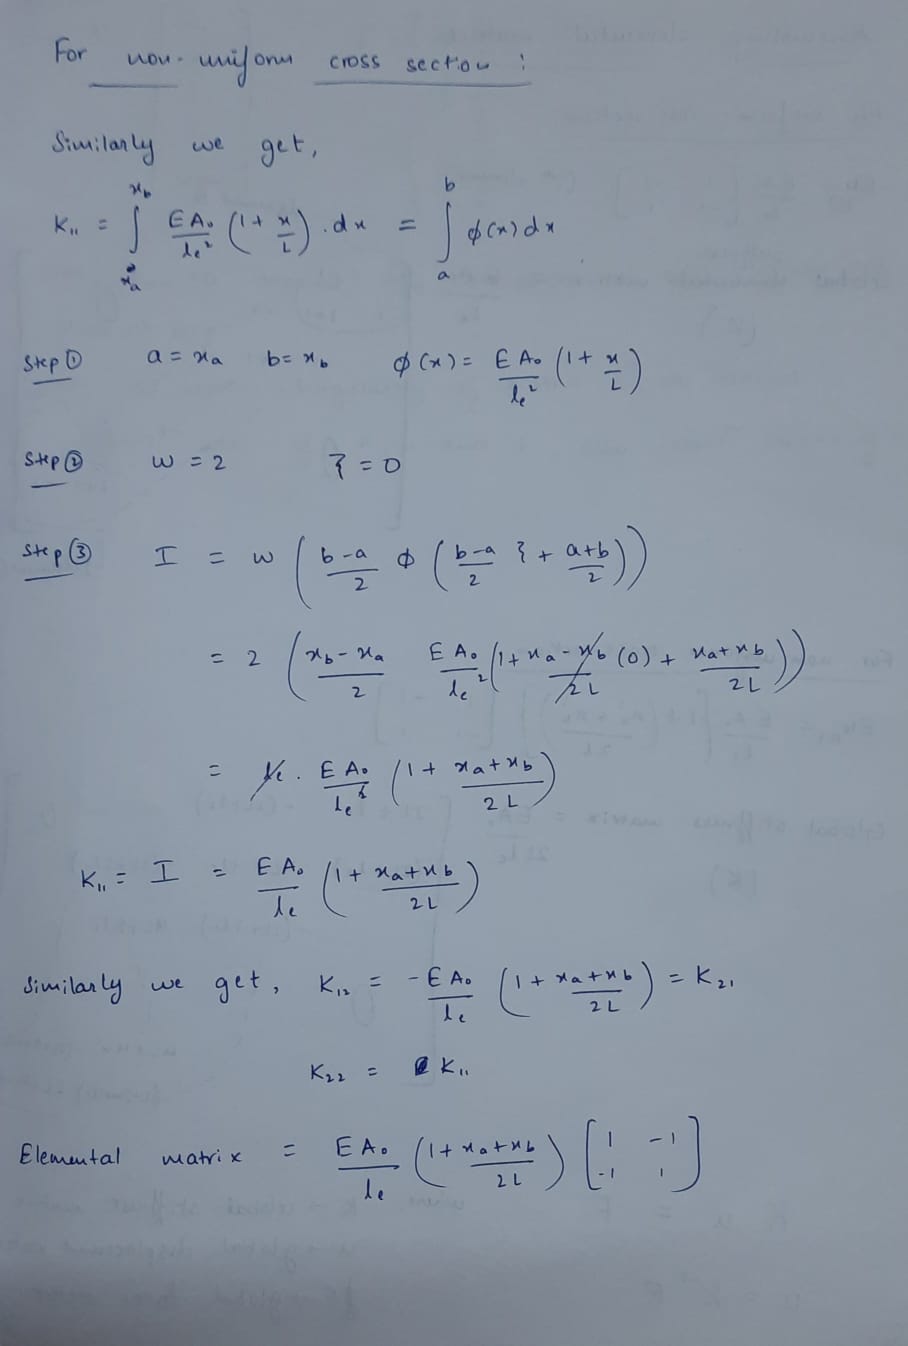 For non-uniform cross section :
Similarly we get,
K₁₁ = ∫_{xa}^{xb} EA₀/le² (1 + x/L) . dx = ∫_{a}^{b} ϕ(x) dx
Step ① a = xa b = xb ϕ(x) = EA₀/le² (1 + x/L)
Step ② w = 2 ξ = 0
Step ③ I = w ( b-a/2 ϕ ( b-a/2 ξ + a+b/2 ) )
= 2 ( xb-xa/2 EA₀/le² (1 + xa-xb/2L (0) + xa+xb/2L ) )
= le . EA₀/le² (1 + xa+xb/2L)
K₁₁ = I = EA₀/le (1 + xa+xb/2L)
Similarly we get, K₁₂ = -EA₀/le (1 + xa+xb/2L) = K₂₁
K₂₂ = K₁₁
Elemental matrix = EA₀/le (1 + xa+xb/2L) [ 1 -1
-1 1 ]